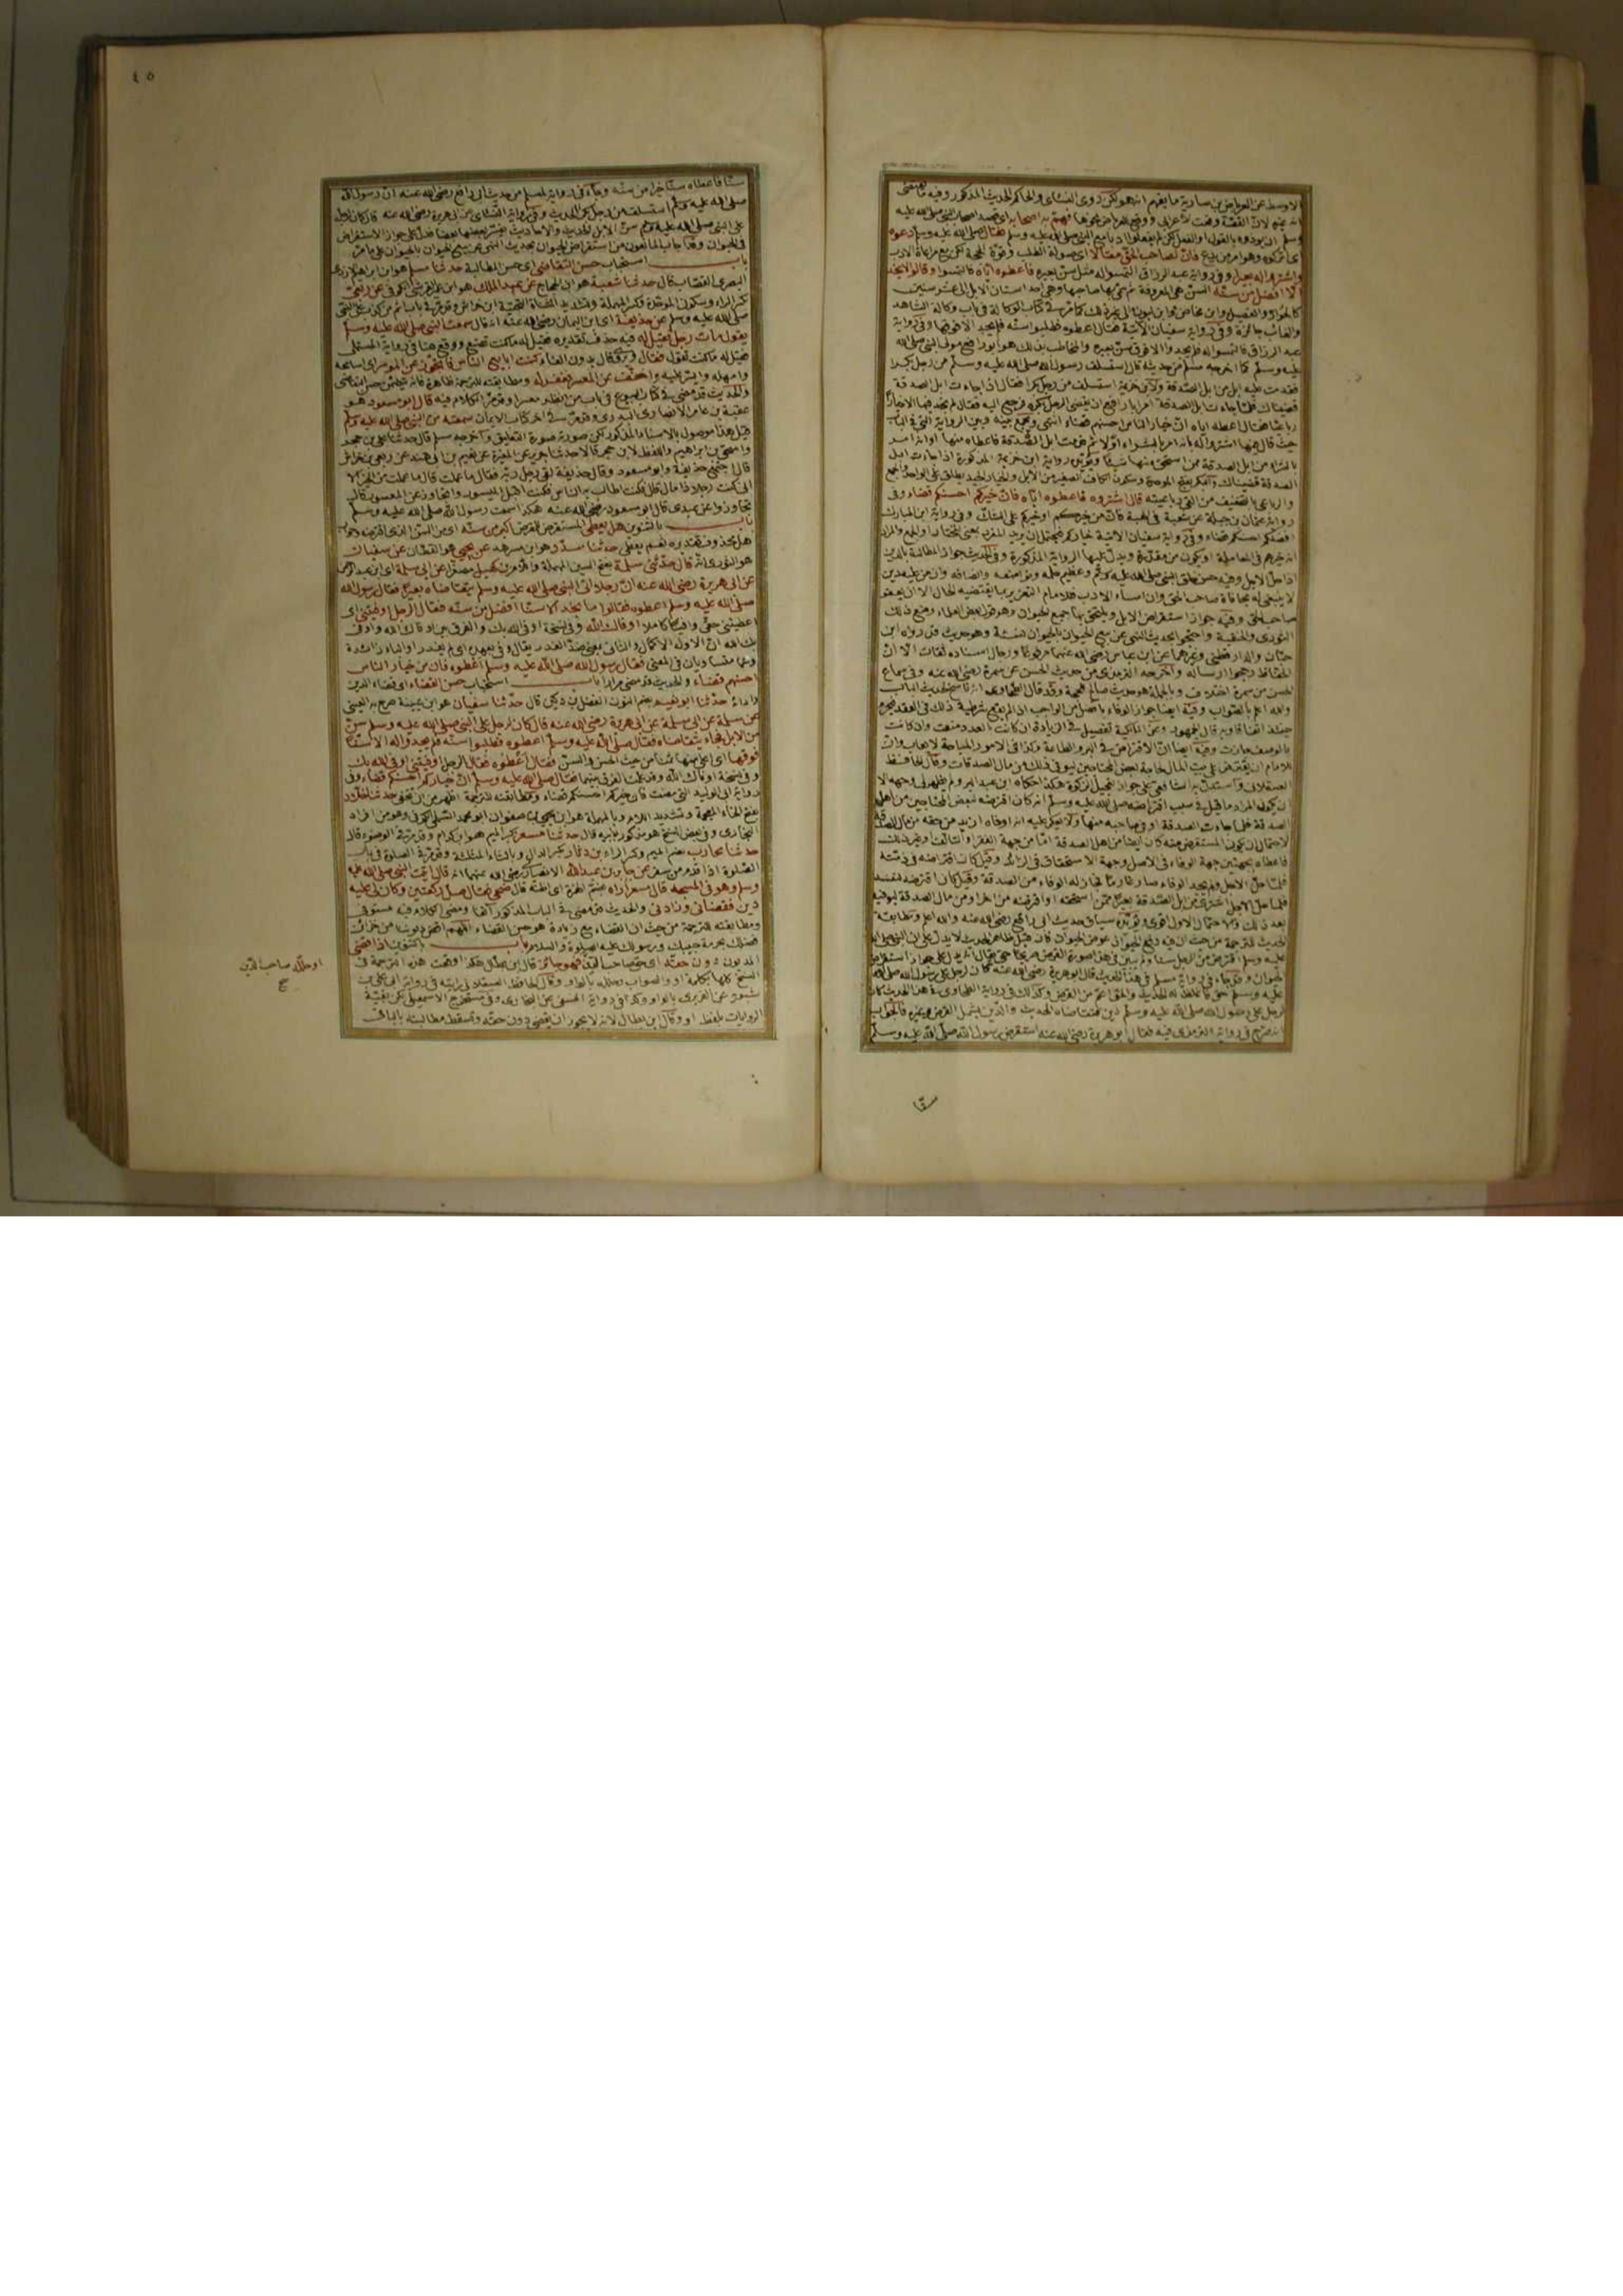 الاوسط عن العرباض بن سارية ما يفهم انه هو لكن روى النسائي والحاكم الحديث المذكور وفيه ما يقتضي
انه غيره لان القصة وقعت لاعرابي ووقع للعرباض نحوها فهم به اصحابه اي قصد اصحاب النبي صلى الله عليه
وسلم ان يؤذوه بالقول او الفعل لكن لم يفعلوا ادبا مع النبي صلى الله عليه وسلم فقال صلى الله عليه وسلم دعوه
اي اتركوه وهو امر من يدع فان لصاحب الحق مقالا اي صولة الطلب وقوة الحجة لكن مع مراعاة الادب
واشتروا له بعيرا وفي رواية عبد الرزاق التمسوا له مثل سن بعيره فاعطوه اياه فالتمسوا وقالوا لا نجد
الا افضل من سنه السن هي المعروفة ثم سمي بها صاحبها وهي احد اسنان الابل الى عشر سنين
والغائب جائزة وفي رواية سفيان الآتية فقال اعطوه فطلبوا سنه فلم يجدوا الا فوقها وفي رواية
عبد الرزاق فالتمسوا له فلم يجدوا الا فوق سن بعيره والمخاطب بذلك هو ابو رافع مولى النبي صلى الله
عليه وسلم كما اخرجه مسلم من حديثه قال استسلف رسول الله صلى الله عليه وسلم من رجل بكرا
فقدمت عليه ابل من ابل الصدقة ولابن خزيمة استسلف من رجل بكرا فقال اذا جاءت ابل الصدقة
قضيناك فلما جاءت ابل الصدقة امر ابا رافع ان يقضي الرجل بكره فرجع اليه فقال لم اجد فيها الا خيارا
رباعيا فقال اعطه اياه ان خيار الناس احسنهم قضاء انتهى ويجمع بينه وبين الرواية التي في الباب
حيث قال فيها اشتروا له بانه امر بالشراء اولا ثم قدمت ابل الصدقة فاعطاه منها او انه امر
بالشراء من ابل الصدقة ممن استحق منها شيئا ويؤيده رواية ابن خزيمة المذكورة اذا جاءت ابل
الصدقة قضيناك والبكر بفتح الموحدة وسكون الكاف الصغير من الابل والخيار الجيد يطلق على الواحد والجمع
قال اشتروه فاعطوه اياه فان خيركم احسنكم قضاء وفي
رواية عثمان بن جبلة عن شعبة في الهبة فان من خيركم او خيركم على الشك وفي رواية ابن المبارك
افضلكم احسنكم قضاء وفي رواية سفيان الآتية خياركم
اذا حل الاجل وفيه حسن خلق النبي صلى الله عليه وسلم وعظيم حلمه وتواضعه وانصافه وان من عليه دين
لا ينبغي له مجافاة صاحب الحق وان من اساء الادب
صاحب الحق وفيه جواز استقراض الابل ويلتحق بها جميع الحيوان وهو قول بعض العلماء ومنع ذلك
الثوري والحنفية واحتجوا بحديث النهي عن بيع الحيوان بالحيوان نسيئة وهو حديث قد رواه ابن
حبان والدارقطني وغيرهما عن ابن عباس رضي الله عنهما مرفوعا ورجال اسناده ثقات الا ان
الحفاظ رجحوا ارساله واخرجه الترمذي من حديث الحسن عن سمرة رضي الله عنه وفي سماع
الحسن من سمرة اختلاف وبالجملة هو حديث صالح للحجة وقد قال الطحاوي انه ناسخ لحديث الباب
والله اعلم بالصواب وفيه ايضا جواز الوفاء بافضل من الواجب اذا لم يقع شرطية ذلك في العقد
حينئذ اتفاقا وبه قال الجمهور وعن المالكية تفصيل في الزيادة ان كانت بالعدد منعت وان كانت
بالوصف جازت وفيه ايضا ان الاقتراض في البر والطاعة وكذا في الامور المباحة لا يعاب وان
للامام ان يقترض على بيت المال لحاجة بعض المحتاجين ليوفي ذلك من مال الصدقات وقال الحافظ
العسقلاني واستدل به الشافعي على جواز تعجيل الزكوة هكذا حكاه ابن عبد البر ولم يظهر لي وجهه الا
ان يكون المراد ما قيل في سبب اقتراضه صلى الله عليه وسلم انه كان اقترضه لبعض المحتاجين من اهل
الصدقة فلما جاءت الصدقة اوفى صاحبه منها ولا يعكر عليه انه اوفاه ازيد من حقه من مال الصدقة
لاحتمال ان يكون المستقرض منه كان ايضا من اهل الصدقة اما من جهة الفقر او التألف او غير ذلك
فاعطاه بجهتين جهة الوفاء في الاصل وجهة الاستحقاق في الزائد وقيل كان اقترضه في ذمته
فلما حل الاجل ولم يجد الوفاء صار غارما فجاز له الوفاء من الصدقة وقيل كان اقترضه لنفسه
فلما حل الاجل اشترى من ابل الصدقة بعيرا ممن استحقه او اقترضه من آخر او من مال الصدقة ليوفيه
بعد ذلك والاحتمال الاول اقوى ويؤيده سياق حديث ابي رافع رضي الله عنه والله اعلم ومطابقة
الحديث للترجمة من حيث ان فيه دفع الحيوان عوض الحيوان فان قيل ظاهر الحديث لا يدل على ان النبي صلى الله
عليه وسلم حق فاغلظ له الحديث
لرجل على رسول الله صلى الله عليه وسلم دين فتقاضاه الحديث والدين يشمل القرض وغيره فالجواب
انه صرح في رواية الترمذي فيه فقال ابو هريرة رضي الله عنه استقرض رسول الله صلى الله عليه وسلم
سنا
٤٥
سنا فاعطاه سنا خيرا من سنه وجاء في رواية لمسلم من حديث ابي رافع رضي الله عنه ان رسول الله
صلى الله عليه وسلم استسلف من رجل بكرا الحديث وفي رواية النسائي عن ابي هريرة رضي الله عنه قال كان لرجل
على النبي صلى الله عليه وسلم سن من الابل الحديث والاحاديث يفسر بعضها بعضا فدل على جواز الاستقراض
في الحيوان وقد اجاب المانعون من استقراض الحيوان بحديث النهي عن بيع الحيوان بالحيوان على ما مر
باب استحباب حسن التقاضي اي حسن المطالبة حدثنا مسلم هو ابن ابراهيم الازدي
البصري القصاب قال حدثنا شعبة هو ابن الحجاج عن عبد الملك هو ابن عمير القرشي الكوفي عن ربعي
صلى الله عليه وسلم عن حذيفة اي ابن اليمان رضي الله عنه انه قال سمعت النبي صلى الله عليه وسلم
يقول مات رجل فقيل له فيه حذف تقديره فقيل له ما كنت تصنع ووقع هنا في رواية المستملي
فقيل له ما كنت تقول فقال ويروى قال بدون الفاء كنت ابايع الناس فاتجوز عن الموسر اي اسامحه
وامهله وايسر عليه واخفف عن المعسر فغفر له ومطابقته للترجمة ظاهرة
والحديث قد مضى في كتاب البيوع في باب من انظر معسرا وقد مر الكلام فيه قال ابو مسعود هو
عقبة بن عامر الانصاري البدري وقد مر في اخر كتاب الايمان سمعته من النبي صلى الله عليه وسلم
قيل هذا موصول بالاسناد المذكور لكن صورته صورة التعليق واخرجه مسلم قال حدثنا علي بن حجر
واسحق بن ابراهيم واللفظ لابن حجر قالا حدثنا جرير عن المغيرة عن نعيم بن ابي هند عن ربعي بن حراش
قال اجتمع حذيفة وابو مسعود وقال حذيفة لقي رجل ربه فقال ما عملت قال ما عملت من الخير الا
اني كنت رجلا ذا مال فكنت اطالب به الناس فكنت اقبل الميسور واتجاوز عن المعسور قال
تجاوزوا عن عبدي قال ابو مسعود رضي الله عنه هكذا سمعت رسول الله صلى الله عليه وسلم
باب بالتنوين هل يعطي المستقرض للمقرض اكبر من سنه اي من السن الذي اقترضه وجواب
هل محذوف تقديره نعم يعطى حدثنا مسدد هو ابن مسرهد عن يحيى هو القطان عن سفيان
هو الثوري انه قال حدثني سلمة بفتح السين المهملة واللام بن كهيل مصغرا عن ابي سلمة اي ابن عبد الرحمن
عن ابي هريرة رضي الله عنه ان رجلا اتى النبي صلى الله عليه وسلم يتقاضاه بعيرا فقال رسول الله
صلى الله عليه وسلم اعطوه فقالوا ما نجد الا سنا افضل من سنه فقال الرجل اوفيتني اي
اعطيتني حقي وافيا كاملا اوفاك الله وفي نسخة اوفى الله بك
وهما متساويان في المعنى فقال رسول الله صلى الله عليه وسلم اعطوه فان من خيار الناس
احسنهم قضاء والحديث قد مضى مرارا باب استحباب حسن القضاء اي قضاء الدين
واداؤه حدثنا ابو نعيم بضم النون الفضل بن دكين قال حدثنا سفيان هو ابن عيينة صرح به العيني
عن سلمة عن ابي سلمة عن ابي هريرة رضي الله عنه قال كان لرجل على النبي صلى الله عليه وسلم سن
من الابل فجاءه يتقاضاه فقال صلى الله عليه وسلم اعطوه فطلبوا سنه فلم يجدوا له الا سنا
فوقها اي اعلى منها ثمنا من حيث الحسن والسن فقال اعطوه فقال الرجل اوفيتني اوفى الله بك
وفي نسخة اوفاك الله وقد علمت الفرق بينهما فقال صلى الله عليه وسلم ان خياركم احسنكم قضاء وفي
رواية ابي الوليد التي مضت فان خيركم احسنكم قضاء ومطابقته للترجمة اظهر من ان تخفى حدثنا خلاد
بفتح الخاء المعجمة وتشديد اللام وبالمهملة هو ابن يحيى بن صفوان ابو محمد السلمي الكوفي وهو من افراد
البخاري وفي بعض النسخ هو مذكور بابيه قال حدثنا مسعر بكسر الميم هو ابن كدام وقد مر في الوضوء قال
حدثنا محارب بضم الميم وكسر الراء بن دثار بكسر الدال وبالثاء المثلثة وقد مر في الصلوة في باب
الصلوة اذا قدم من سفر عن جابر بن عبد الله الانصاري رضي الله عنهما انه قال اتيت النبي صلى الله عليه
وسلم وهو في المسجد قال مسعر اراه بضم الهمزة اي اظنه قال ضحى فقال صل ركعتين وكان لي عليه
دين فقضاني وزادني والحديث قد مضى في الباب المذكور آنفا ومضى الكلام فيه مستوفى
ومطابقته للترجمة من حيث ان القضاء مع زيادة هو حسن القضاء اللهم اقض ديوننا من خزائن
فضلك بحرمة حبيبك ورسولك عليه الصلوة والسلام باب بالتنوين اذا قضى
المديون دون حقه اي حق صاحب الدين فهو جائز قال ابن بطال هكذا وقعت هذه الترجمة في
النسخ كلها بكلمة او والصواب وحلله بالواو وقال الحافظ العسقلاني رأيته في رواية ابي علي بن
شبويه عن الفربري بالواو وكذا في رواية النسفي عن البخاري وفي مستخرج الاسمعيلي لكن بقية
الروايات بلفظ او وقال ابن بطال لانه لا يجوز ان يقضي دون حقه وتسقط مطالبته بالباقي
او حلله صاحب الدين
صح